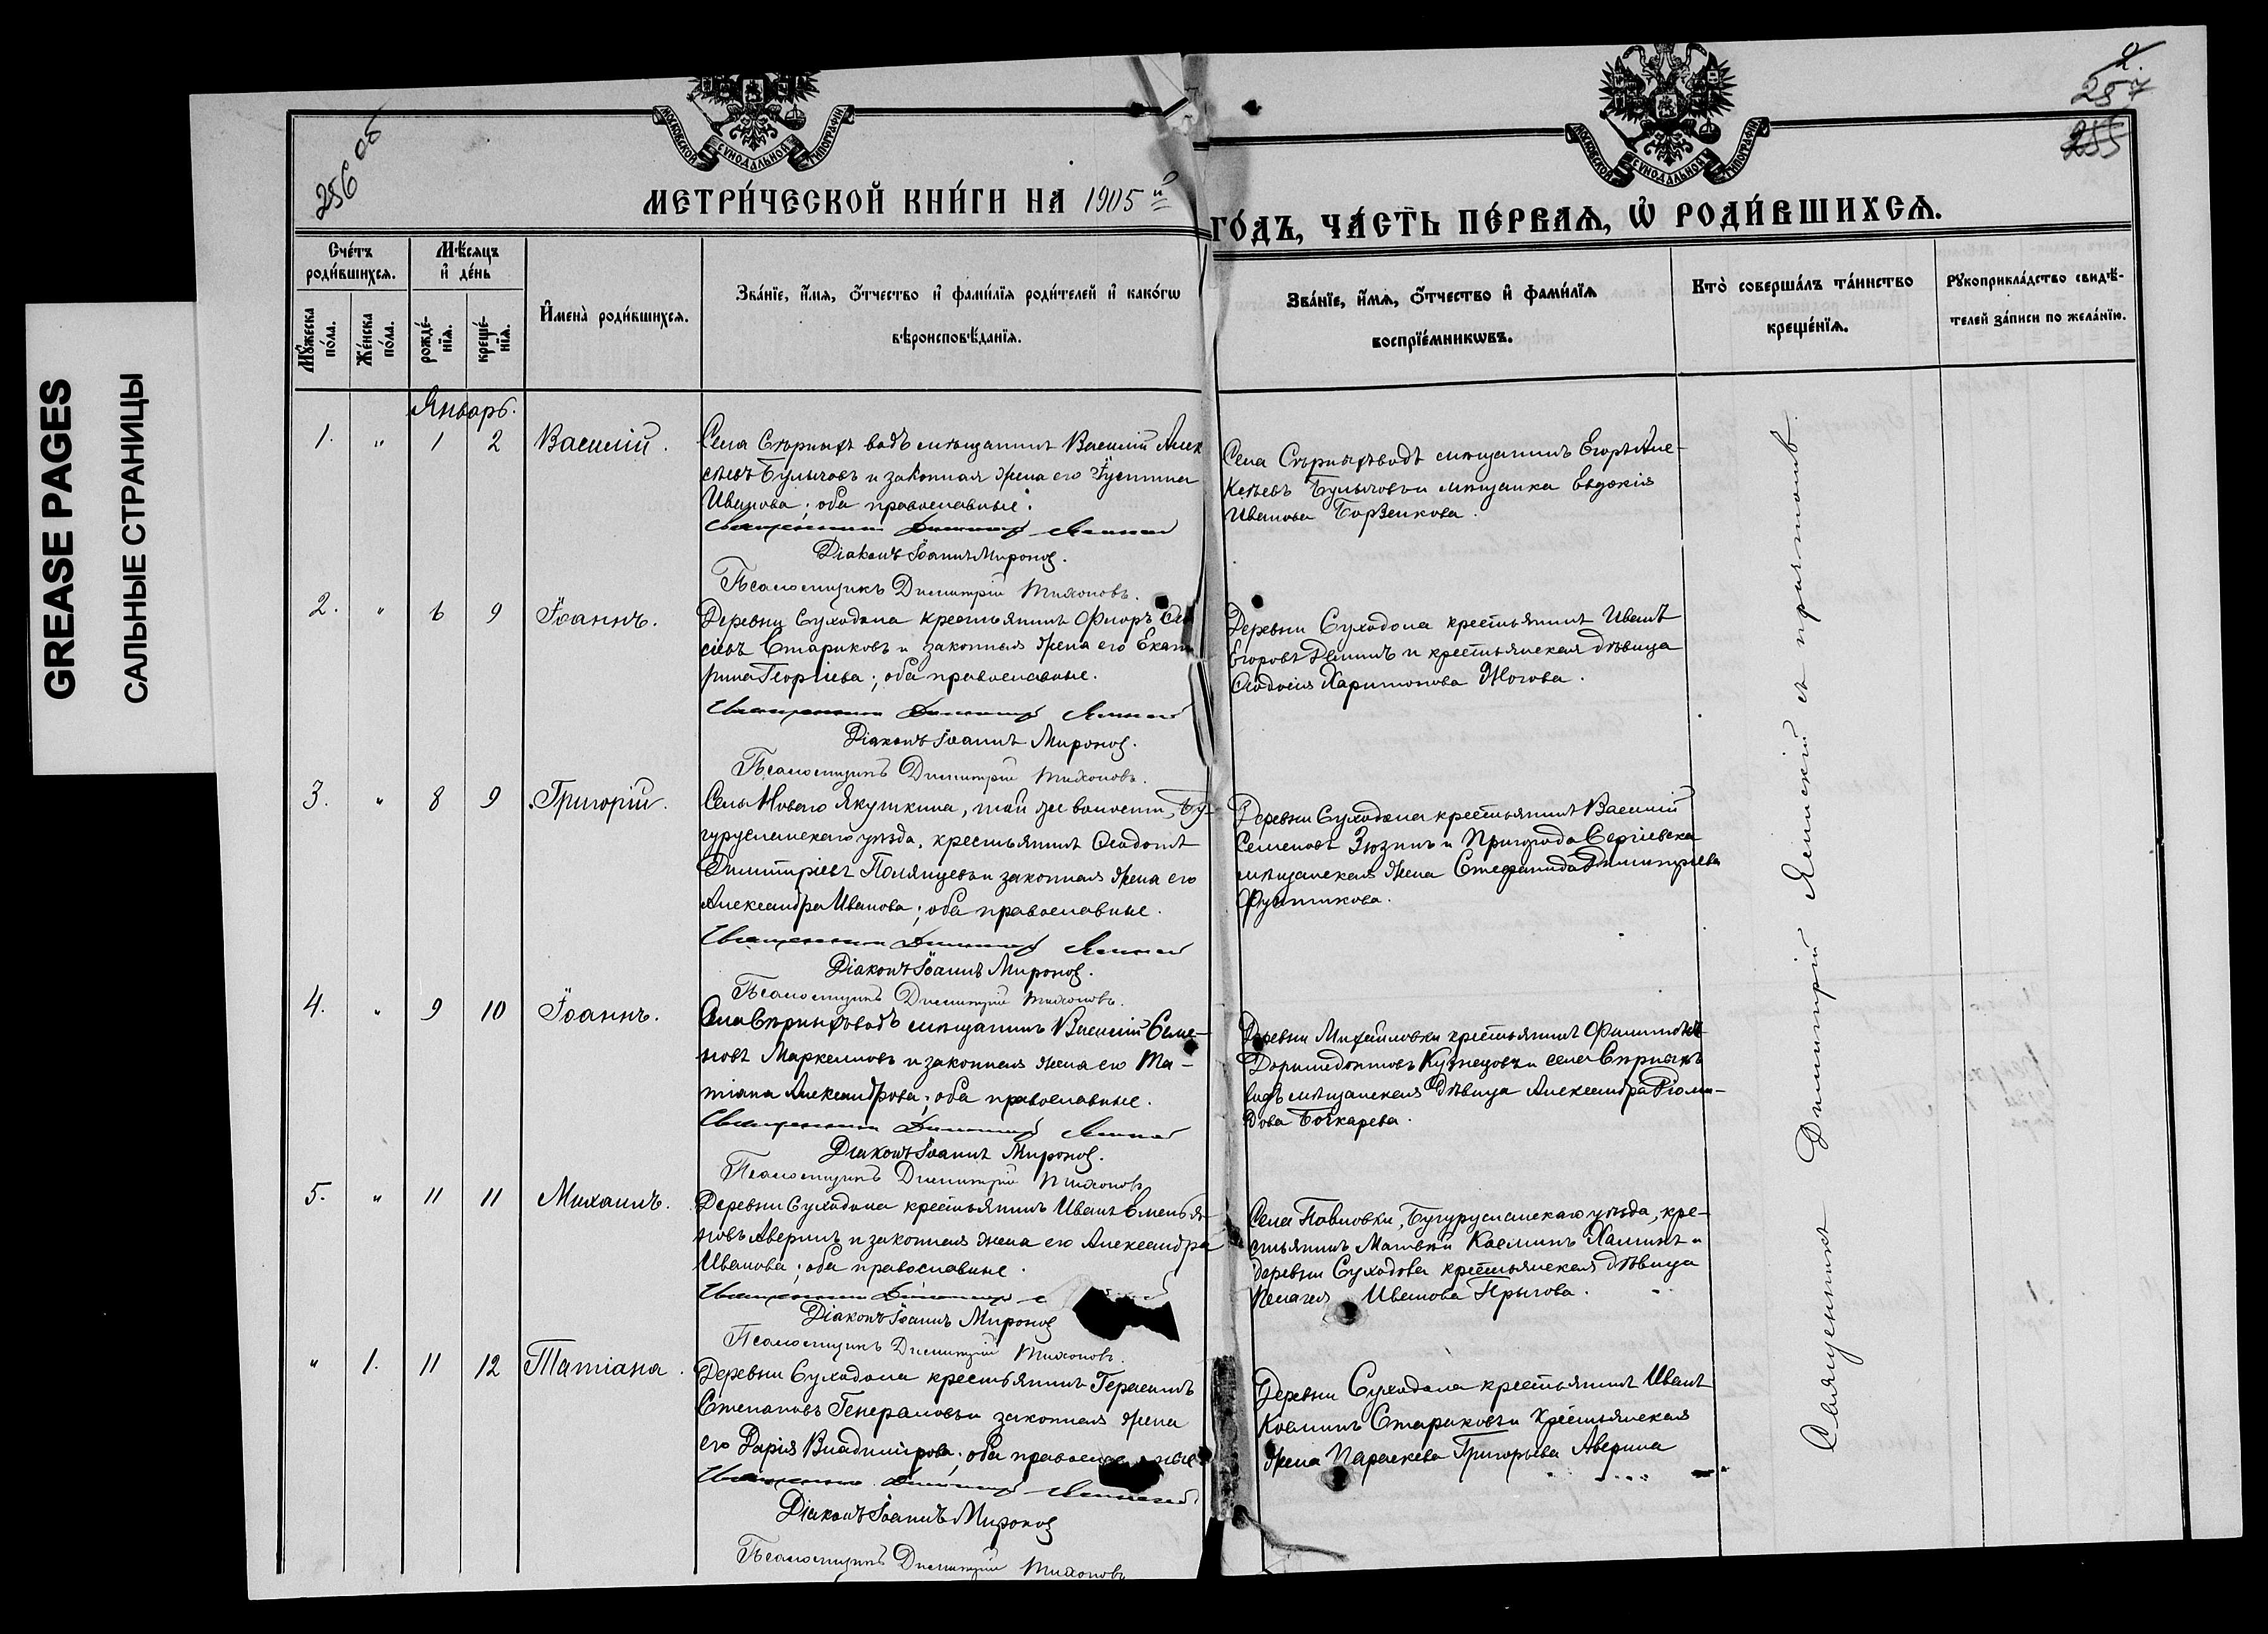 GREASE PAGES
САЛЬНЫЕ СТРАНИЦЫ
256 об
2.
257
255
МОСКОВСКОЙ СѴНОДАЛЬНОЙ ТИПОГРАФІИ
МОСКОВСКОЙ СѴНОДАЛЬНОЙ ТИПОГРАФІИ
МЕТРИ́ЧЕСКОЙ КНИ́ГИ НА 1905 й
ГО́ДЪ, ЧА́СТЬ ПЕ́РВАѦ, Ѿ РОДИ́ВШИХСѦ.
Сче́тъ роди́вшихсѧ.
Мѣ́сяцъ и҆ де́нь
Мꙋ́жеска по́ла.
Же́нска по́ла.
рожде́нїѧ.
креще́нїѧ.
И҆мена̀ роди́вшихсѧ.
Зва́нїе, и҆́мѧ, ѻ҆́тчество и҆ фами́лїѧ роди́телей и҆ како́гѡ
вѣроисповѣ́данїѧ.
Зва́нїе, и҆́мѧ, ѻ҆́тчество и҆ фами́лїѧ
воспрїе́мникѡвъ.
Кто̀ соверша́лъ та́инство
креще́нїѧ.
Рꙋкоприкла́дство свидѣ́-
телей за́писи по жела́нїю.
Январь.
1. " 1 2 Василій.
Села Сѣрныхъ водъ мѣщанинъ Василій Алек
сѣевъ Булычовъ и законная жена его Іустина
Иванова; оба православные.
Священникъ Димитрій Ясенскій
Діаконъ Іоаннъ Мироновъ.
Псаломщикъ Димитрій Тихоновъ.
Села Сѣрныхъ водъ мѣщанинъ Егоръ Але-
ксѣевъ Булычовъ и мѣщанка Евдокія
Иванова Борзенкова.
2. " 6 9 Іоаннъ.
Деревни Суходола крестьянинъ Флоръ
сѣевъ Стариковъ и законная жена его Екате
рина Георгіева; оба православные.
Священникъ Димитрій Ясенскій
Діаконъ Іоаннъ Мироновъ.
Псаломщикъ Димитрій Тихоновъ.
Деревни Суходола крестьянинъ Иванъ
Егоровъ Деминъ и крестьянская дѣвица
Ѳеодосія Харитонова Жогова.
3. " 8 9 Григорій.
Села Новаго Якушкина, той же волости, Бу-
гурусланскаго уѣзда, крестьянинъ Ѳеодотъ
Димитріевъ Полянцевъ и законная жена его
Александра Иванова; оба православные.
Священникъ Димитрій Ясенскій
Діаконъ Іоаннъ Мироновъ.
Псаломщикъ Димитрій Тихоновъ.
Деревни Суходола крестьянинъ Василій
Семеновъ Зюзинъ и Пригорода Сергіевска
мѣщанская жена Стефанида Димитріева
Фунтикова.
4. " 9 10 Іоаннъ.
Села Сѣрныхъ водъ мѣщанинъ Василій Семе-
новъ Маркеловъ и законная жена его Та-
тіана Александрова; оба православные.
Священникъ Димитрій Ясенскій
Діаконъ Іоаннъ Мироновъ.
Псаломщикъ Димитрій Тихоновъ
Деревни Михайловки крестьянинъ Филимонъ
Доримедонтовъ Кузнецовъ и села Сѣрныхъ
водъ мѣщанская дѣвица Александра Діоми-
дова Бочкарева.
5. " 11 11 Михаилъ.
Деревни Суходола крестьянинъ Иванъ Емелья-
новъ Аверинъ и законная жена его Александра
Иванова; оба православные.
Священникъ Димитрій
Діаконъ Іоаннъ Мироновъ
Псаломщикъ Димитрій Тихоновъ.
Села Павловки, Бугурусланскаго уѣзда, кре-
стьянинъ Матвѣй Косминъ Хаминъ и
деревни Суходола крестьянская дѣвица
Пелагея Иванова Прыгова.
" 1. 11 12 Татіана.
Деревни Суходола крестьянинъ Герасимъ
Степановъ Генераловъ и законная жена
его Дарія Владимірова; оба православные
Священникъ Димитрій Ясенскій
Діаконъ Іоаннъ Мироновъ
Псаломщикъ Димитрій Тихоновъ
Деревни Суходола крестьянинъ Иванъ
Косминъ Стариковъ и крестьянская
жена Параскева Григорьева Аверина
Священникъ Димитрій Ясенскій съ причтомъ.